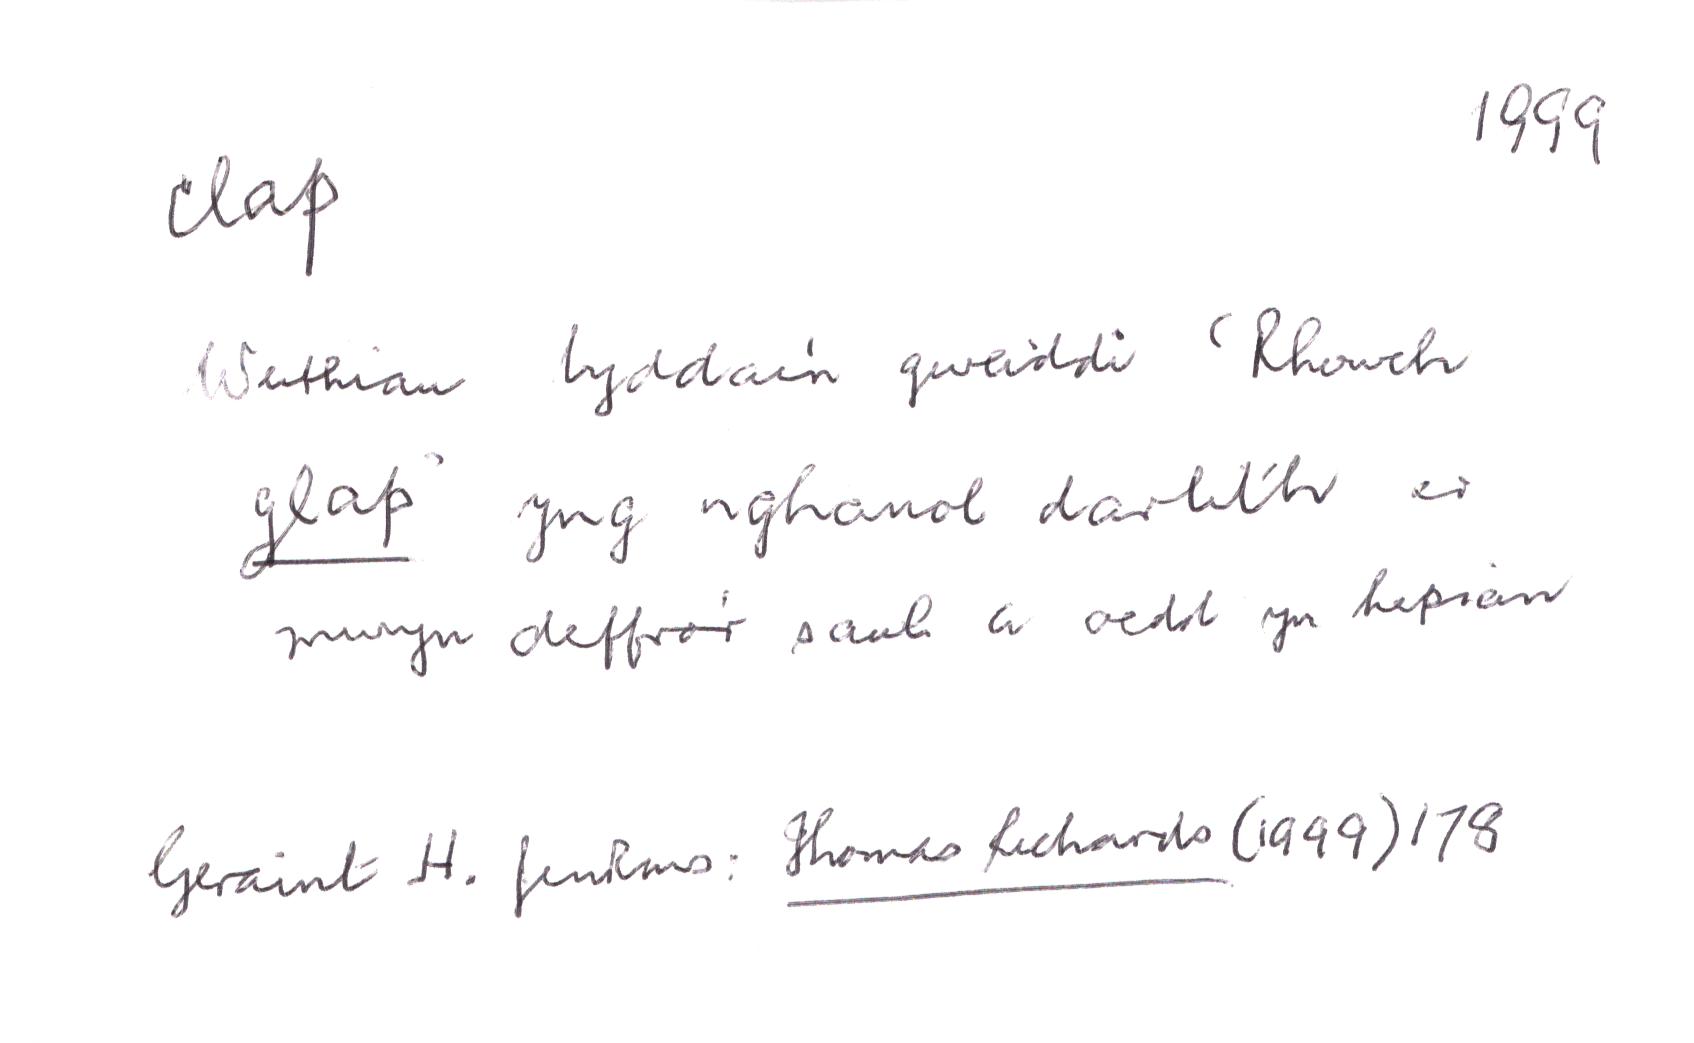 1999
clap
Weithiau byddai'n gweiddi ‘Rhowch
glap’ yng nghanol darlith er
mwyn deffro'r sawl a oedd yn hepian
Geraint H. Jenkins: Thomas Richards (1999) 178